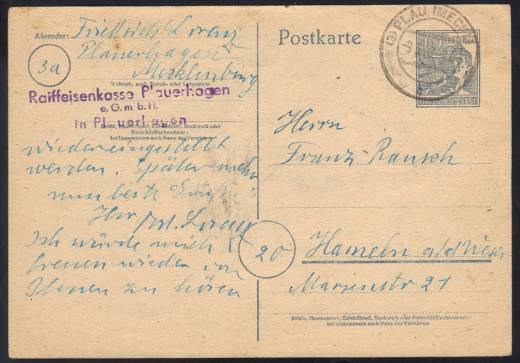 Absender: Friedrich Lorenz
Plauerhagen
Mecklenburg
3a
Wohnort, auch Zustell- oder Leitpostamt
Raiffeisenkasse Plauerhagen
e.G.m.b.H.
in Plauerhagen
Straße, Hausnummer, Gebäudeteil, Stockwerk oder
Postschließfachnummer;
bei Untermietern auch Name des Vermieters
wiedereingestellt
werden. Später mehr
nun beste Grüße
Ihr Lorenz
Ich würde mich
freuen wieder von
Ihnen zu hören
Postkarte
(3) PLAU (MECKL)
Herrn
Franz Rausch
20
Hameln a/d Weser
21
Straße, Hausnummer, Gebäudeteil, Stockwerk oder Postschließfachnummer;
bei Untermietern auch Name des Vermieters